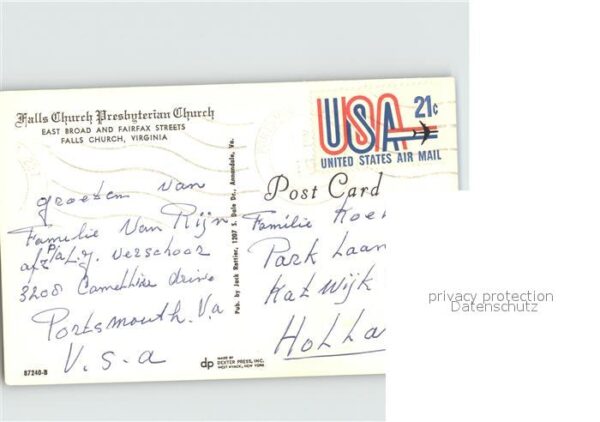 Falls Church Presbyterian Church
EAST BROAD AND FAIRFAX STREETS
FALLS CHURCH, VIRGINIA
USA 21c
UNITED STATES AIR MAIL
Post Card
groeten van
Familie Van Rijn
afz P/a L.y. Verschoor
3208 drive
Portsmouth. Va
U.S.a
Pub. by Jack Rottier, 1207 S. Dale Dr., Annandale, Va.
Familie
Park Laan
Katwijk
Holla
87240-B
dp MADE BY
DEXTER PRESS, INC.
WEST NYACK, NEW YORK
privacy protection
Datenschutz